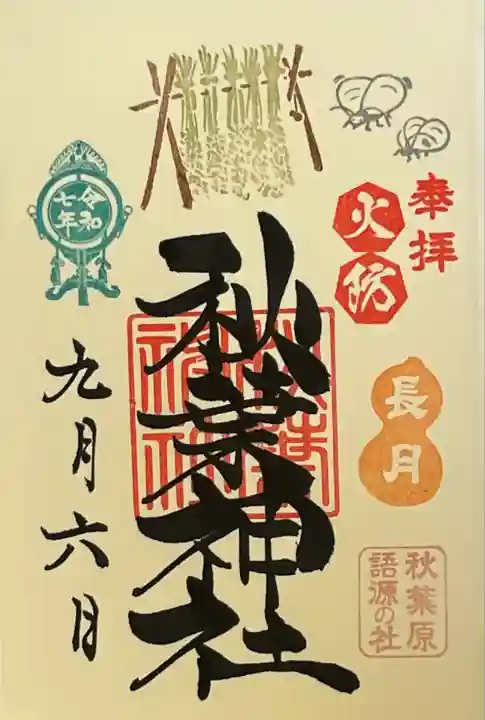 奉拝
火防
長月
秋葉原
語源の社
秋葉神社
秋葉
神社
令和
七年
九月六日